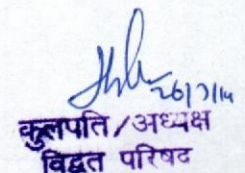 26/7/14
कुलपति/अध्यक्ष
विद्वत परिषद